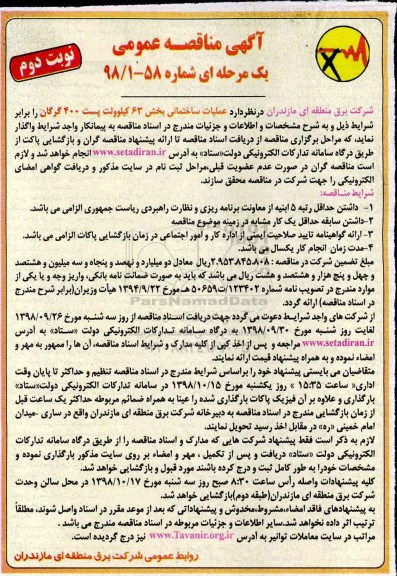 آگهی مناقصه عمومی
یک مرحله ای شماره ۵۸-۹۸/۱
نوبت دوم
شرکت برق منطقه ای مازندران درنظردارد عملیات ساختمانی بخش ۶۳ کیلوولت پست ۴۰۰ گرگان را برابر
شرایط ذیل و به شرح مشخصات و اطلاعات و جزئیات مندرج در اسناد مناقصه به پیمانکار واجد شرایط واگذار
نماید، که مراحل برگزاری مناقصه از دریافت اسناد مناقصه تا ارائه پیشنهاد مناقصه گران و بازگشایی پاکت از
طریق درگاه سامانه تدارکات الکترونیکی دولت«ستاد» به آدرس www.setadiran.ir انجام خواهد شد و لازم
است مناقصه گران در صورت عدم عضویت قبلی،مراحل ثبت نام در سایت مذکور و دریافت گواهی امضای
الکترونیکی را جهت شرکت در مناقصه محقق سازند.
شرایط مناقصه:
۱- داشتن حداقل رتبه ۵ ابنیه از معاونت برنامه ریزی و نظارت راهبردی ریاست جمهوری الزامی می باشد.
۲-داشتن سابقه حداقل یک کار مشابه در زمینه موضوع مناقصه
۳- ارائه گواهینامه تایید صلاحیت ایمنی از اداره کار و امور اجتماعی در زمان بازگشایی پاکات الزامی می باشد.
۴-مدت زمان انجام کار یکسال می باشد.
مبلغ تضمین شرکت در مناقصه : ۲،۹۵۳،۸۴۵،۸۰۸ریال معادل دو میلیارد و نهصد و پنجاه و سه میلیون و هشتصد
و چهل و پنج هزار و هشتصد و هشت ریال می باشد که باید به صورت ضمانت نامه بانکی، واریز وجه و یا یکی از
موارد مندرج در تصویب نامه شماره ۱۲۳۴۰۲/ت۵۰۶۵۹ هـ مورخ ۱۳۹۴/۹/۲۲ هیأت وزیران(برابر شرح مندرج
در اسناد مناقصه) ارائه گردد.
از شرکت های واجد شرایط دعوت می گردد جهت دریافت اسناد مناقصه از روز سه شنبه مورخ ۱۳۹۸/۰۹/۲۶
لغایت روز شنبه مورخ ۱۳۹۸/۰۹/۳۰ به درگاه سامانه تدارکات الکترونیکی دولت «ستاد» به آدرس
www.setadiran.ir مراجعه و پس از اخذ کپی از کلیه مدارک و شرایط اسناد مناقصه، آن ها را ممهور به مهر و
امضاء نموده و به همراه پیشنهاد قیمت ارائه نمایند.
متقاضیان می بایستی پیشنهاد خود را براساس شرایط مندرج در اسناد مناقصه تنظیم و حداکثر تا پایان وقت
اداری« ساعت ۱۵:۳۵ » روز یکشنبه مورخ ۱۳۹۸/۱۰/۱۵ در سامانه تدارکات الکترونیکی دولت«ستاد»
بارگذاری و علاوه بر آن فیزیک پاکات بارگذاری شده را عینا به همراه ضمائم مربوطه حداکثر یک ساعت قبل
از زمان بازگشایی مندرج در اسناد مناقصه به دبیرخانه شرکت برق منطقه ای مازندران واقع در ساری -میدان
امام خمینی (ره» در مقابل اخذ رسید تحویل نمایند.
لازم به ذکر است فقط پیشنهاد شرکت هایی که مدارک و اسناد مناقصه را از طریق درگاه سامانه تدارکات
الکترونیکی دولت «ستاد» دریافت و پس از تکمیل ، مهر و امضاء بر روی سایت مذکور بارگذاری نموده و
مشخصات خودرا به طور کامل ثبت و درج کرده باشند مورد قبول و بازگشایی خواهد شد.
کلیه پیشنهادات واصله رأس ساعت ۸:۳۰ صبح روز سه شنبه مورخ ۱۳۹۸/۱۰/۱۷ در محل سالن وحدت
شرکت برق منطقه ای مازندران(طبقه دوم)بازگشایی خواهد شد.
به پیشنهادهای فاقد امضاء،مشروط،مخدوش و پیشنهاداتی که بعد از موعد مقرر در اسناد واصل شوند، مطلقاً
ترتیب اثر داده نخواهد شد.سایر اطلاعات و جزئیات مربوطه در اسناد مناقصه مندرج می باشد .
مراتب در سایت معاملات توانیر به آدرس www.Tavanir.org.ir نیز درج گردیده است.
روابط عمومی شرکت برق منطقه ای مازندران
ParsNamadData